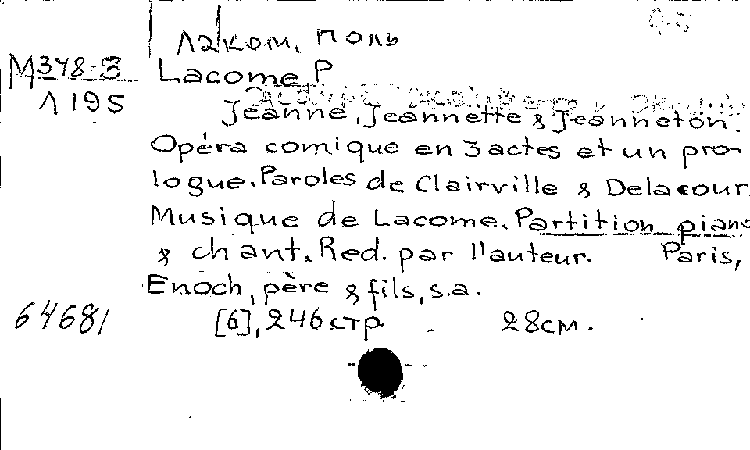 Лаком, Поль
М378-3 Lacome, P
Л 195 Jeanne, Jeannette & Jeanneton.
Opéra comique en 3 actes et un pro-
logue. Paroles de Clairville & Delacour.
Musique de Lacome. Partition piano
& chant. Red. par l'auteur. Paris,
Enoch, père & fils, s.a.
64681 [6], 246 стр. 28 см.